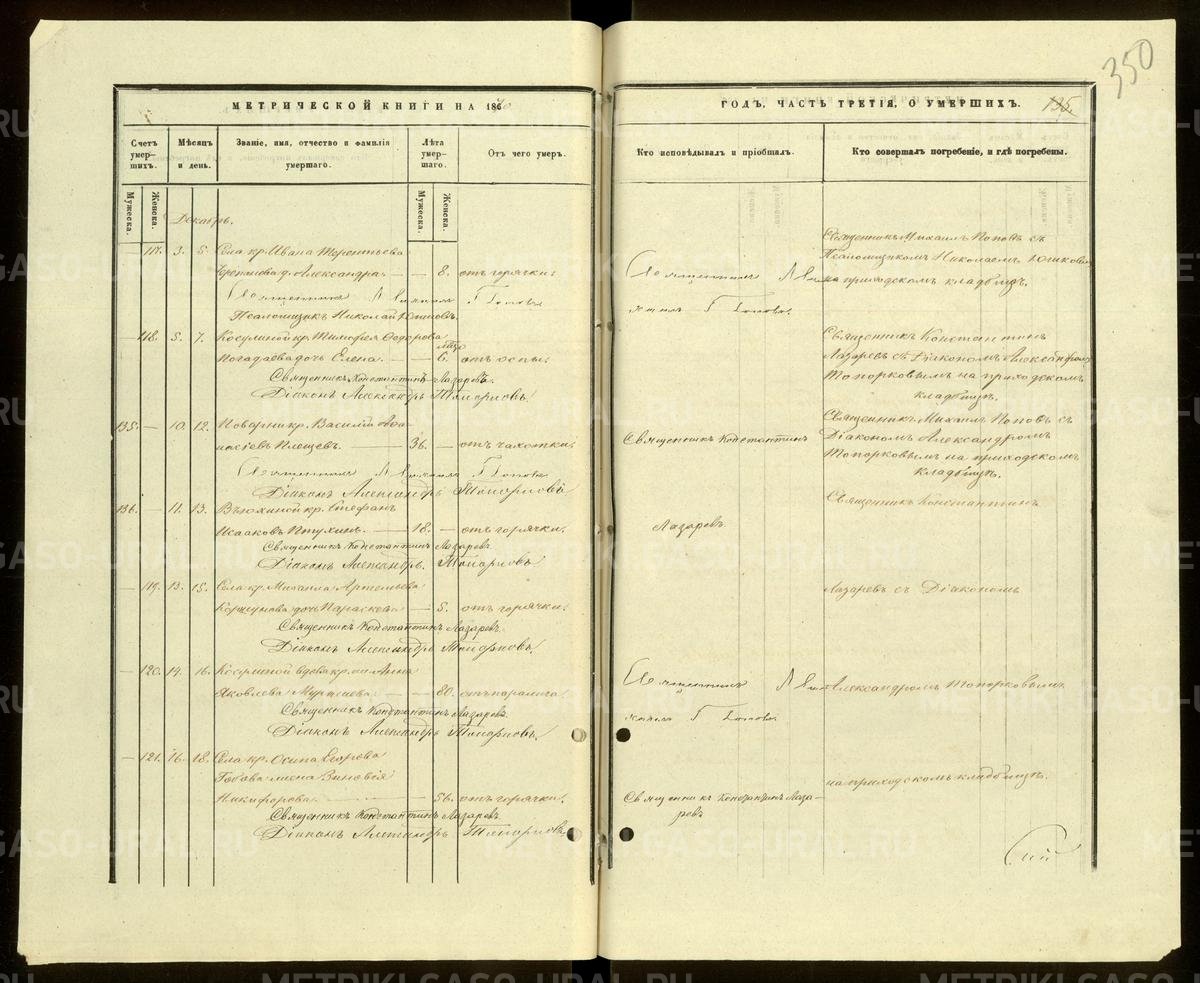 350
МЕТРИЧЕСКОЙ КНИГИ НА 186
ГОДЪ, ЧАСТЬ ТРЕТІЯ, О УМЕРШИХЪ.
135.
Счетъ умерших.
Мѣсяцъ и день.
Званіе, имя, отчество и фамилія умершаго.
Лѣта умершаго.
Отъ чего умеръ.
Кто исповѣдывалъ и пріобщалъ.
Кто совершалъ погребеніе, и гдѣ погребены.
Мужеска.
Женска.
Мужеска.
Женска.
Декабрь.
117. 3. 5. Села кр. Ивана Терентьева
д. Александра — — 8. отъ горячки.
Священникъ Михаилъ Поповъ
Псаломщикъ Николай
118. 5. 7. кр. Тимофея Ѳедорова
Погадаева дочь Елена. — — 6. отъ оспы.
Священникъ Константинъ Лазаревъ.
Діаконъ Александръ Топорковъ.
135. — 10. 12. Поварни кр. Василій
Плещевъ. — 36. — отъ чахотки.
Священникъ Михаилъ Поповъ
Діаконъ Александръ Топорковъ
136. — 11. 13. кр. Стефанъ
Исааковъ Птухинъ. — 18. — отъ горячки.
Священникъ Константинъ Лазаревъ.
Діаконъ Александръ Топорковъ
— 119. 13. 15. Села кр. Михаила Артемьева
Коршунова дочь Параскева — 5. отъ горячки.
Священникъ Константинъ Лазаревъ.
Діаконъ Александръ Топорковъ.
— 120. 14. 16. вдова Анна
Яковлева — — 80. отъ паралича.
Священникъ Константинъ Лазаревъ.
Діаконъ Александръ Топорковъ.
— 121. 16. 18. Села кр. Осипа Егорова
жена Зиновія
Никифорова. — — 56. отъ горячки.
Священникъ Константинъ Лазаревъ.
Діаконъ Александръ Топорковъ.
Священникъ Михаилъ Поповъ.
Священникъ Константинъ
Лазаревъ.
Священникъ Михаилъ Поповъ.
Священникъ Константинъ Лаза-
ревъ
Священникъ Михаилъ Поповъ съ
Псаломщикомъ Николаемъ
на приходскомъ кладбищѣ.
Священникъ Константинъ
Лазаревъ съ Діакономъ Александромъ
Топорковымъ на приходскомъ
кладбищѣ.
Священникъ Михаилъ Поповъ съ
Діакономъ Александромъ
Топорковымъ на приходскомъ
кладбищѣ.
Священникъ Константинъ
Лазаревъ съ Діакономъ
Александромъ Топорковымъ
на приходскомъ кладбищѣ.
METRIKI.GASO-URAL.RU